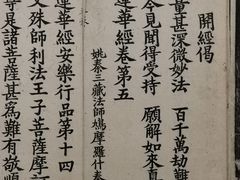 開經偈
量甚深微妙法　百千萬劫難
今見聞得受持　願解如來真
蓮華經卷第五
姚秦三藏法師鳩摩羅什奉
蓮華經安樂行品第十四
文殊師利法王子菩薩摩訶
尊是諸菩薩甚為難有敬順